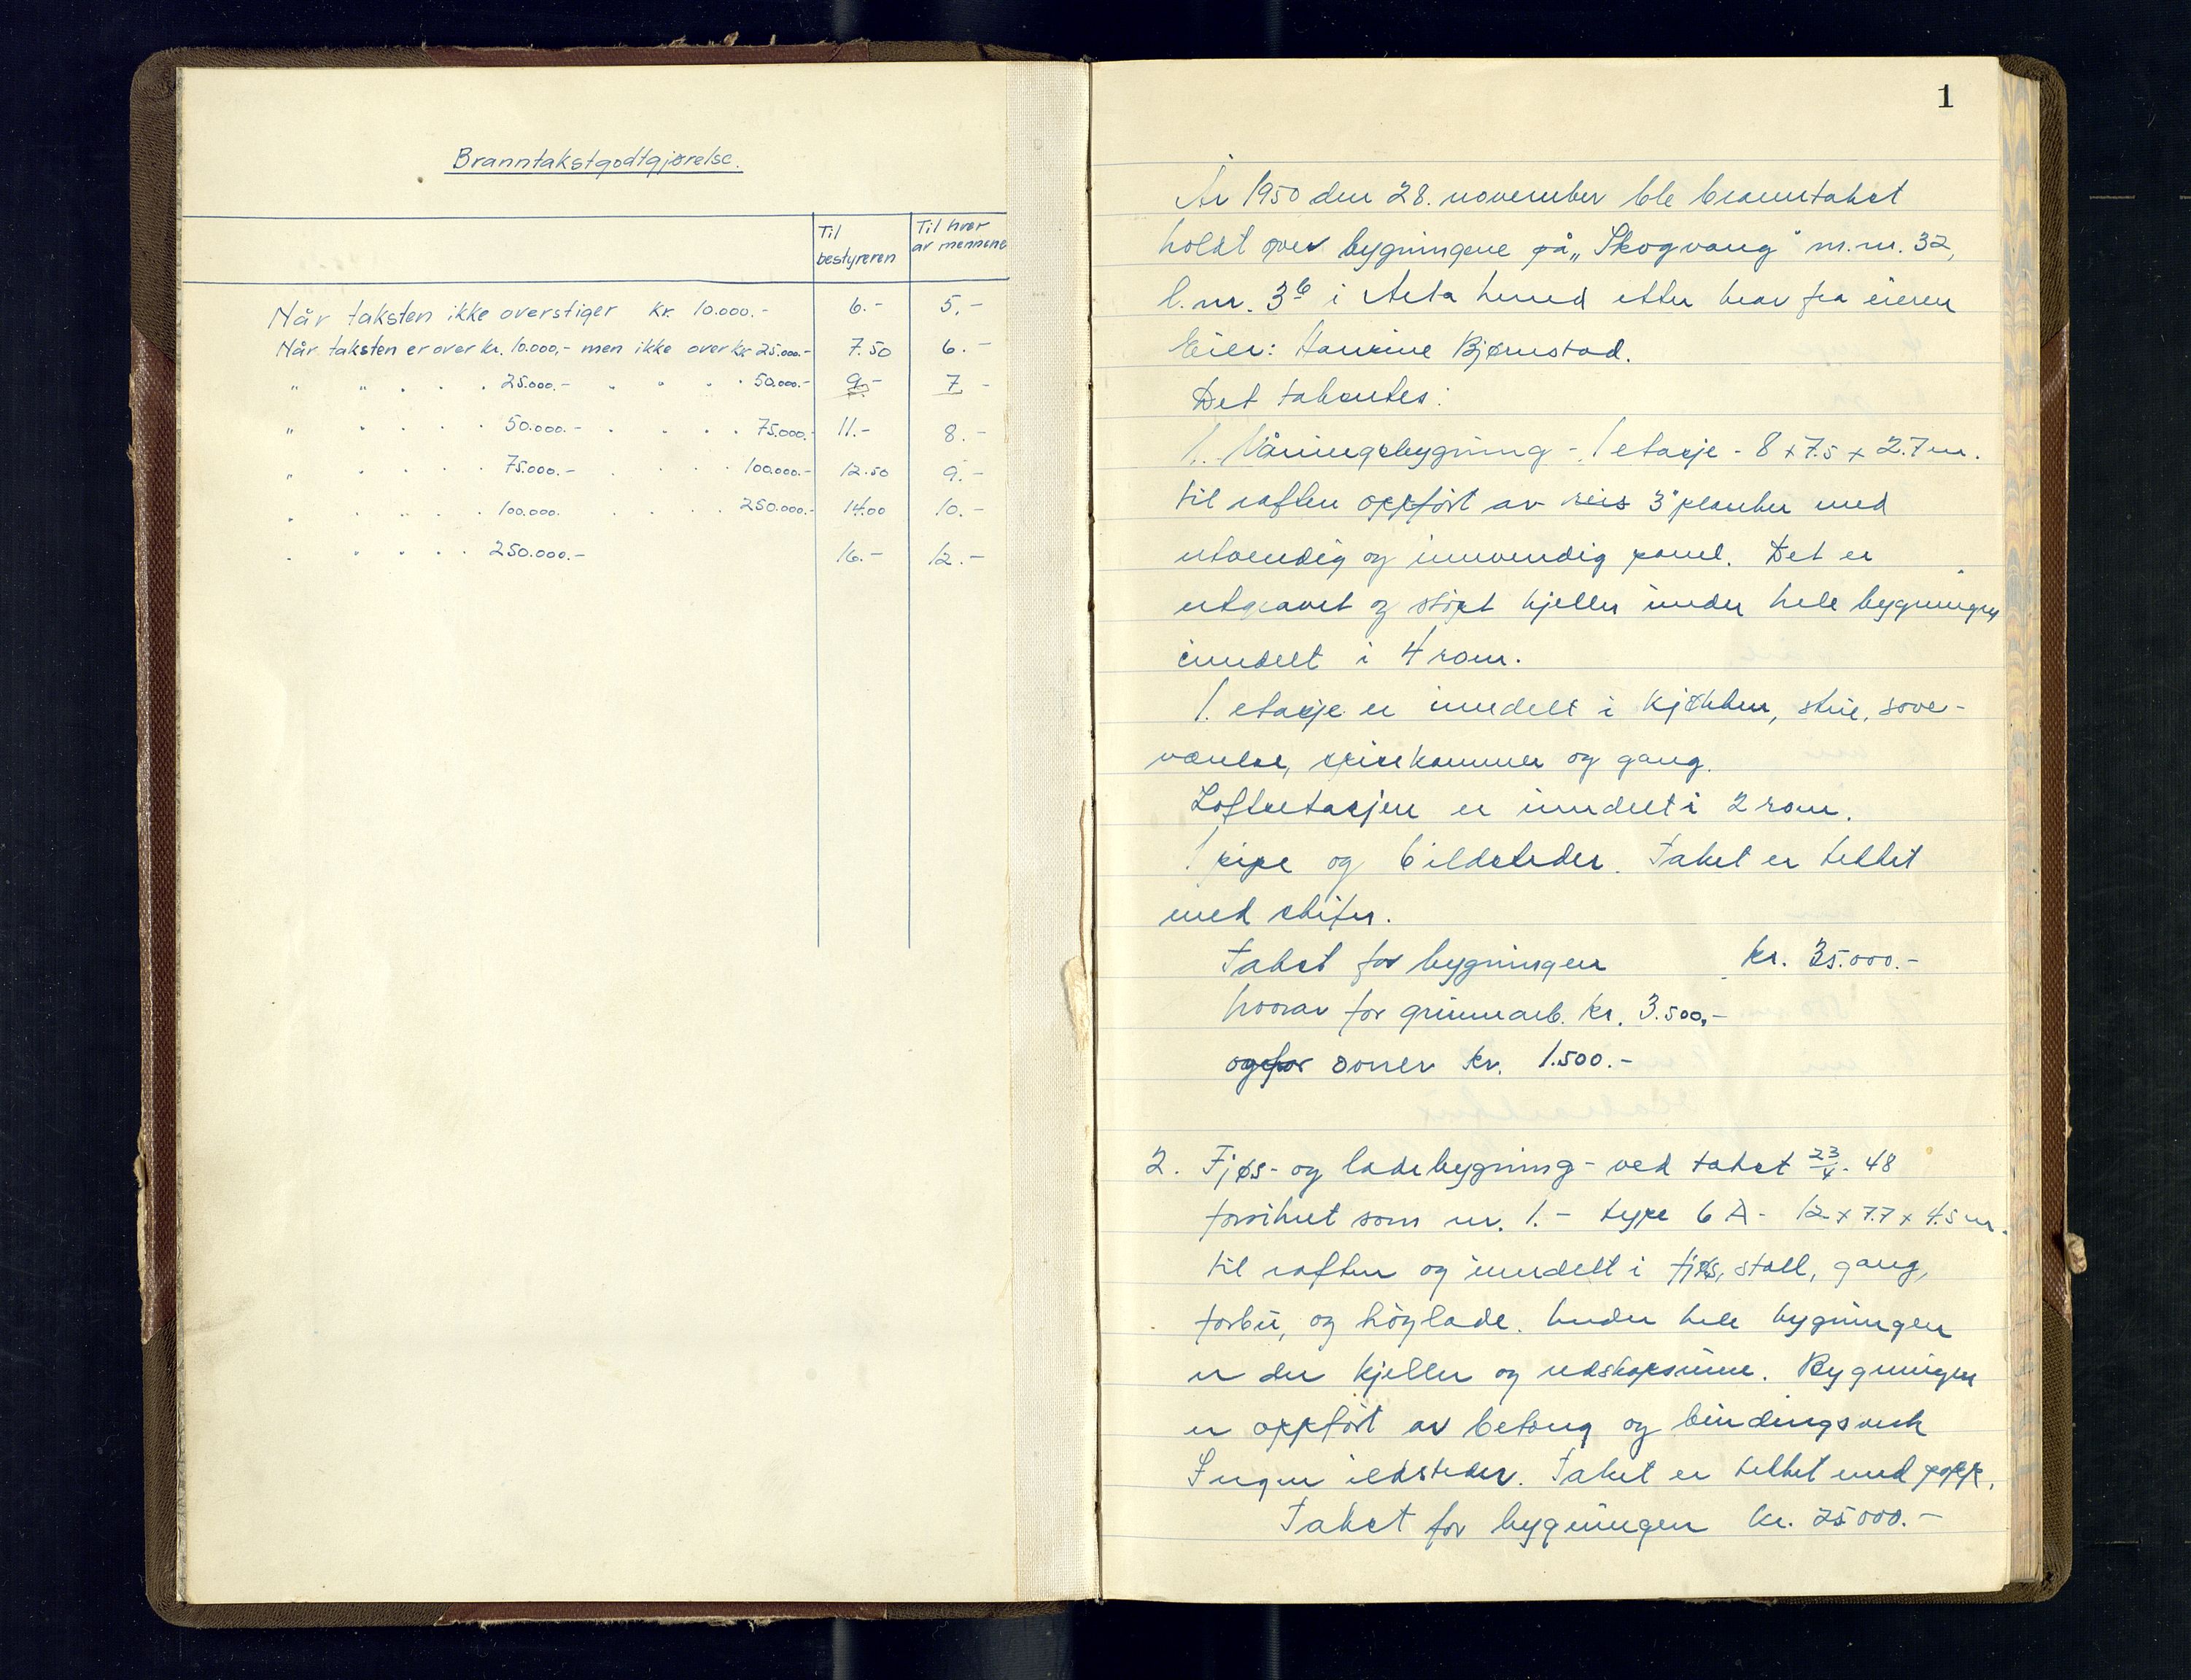 Branntakstgodtgjørelse.
Til bestyreren
Til hver av mennene
Når taksten ikke overstiger kr. 10.000.- 6.- 5.-
Når taksten er over kr. 10.000,- men ikke over kr 25.000.- 7.50 6.-
" " . . . 25.000.- " " . . 50.000.- 9.- 7.-
" . . . . 50.000.- . . . . 75.000.- 11.- 8.-
" . . . . 75.000.- . . . . 100.000.- 12.50 9.-
" . . . . 100.000. . . . . 250.000.- 14.00 10.-
" . . . . 250.000.- 16.- 12.-
1
År 1950 den 28. november ble branntakst
holdt over bygningene på „Skogvang" m.nr. 32,
l.nr. 3⁶ i herred etter krav fra eieren
Eier: Bjørnstad.
Det taksertes:
1. Våningsbygning - 1 etasje - 8 x 7.5 x 2.7 m.
til raften oppført av reis 3" planker med
utvendig og innvendig panel. Det er
utgravet og støpt kjeller under hele bygningen
inndelt i 4 rom.
1. etasje er inndelt i kjøkken, stue, sove-
værelse, spisekammer og gang.
Loftsetasjen er inndelt i 2 rom.
1 pipe og 6 ildsteder. Taket er tekket
med skifer.
Takst for bygningen kr. 35.000.-
hvorav for grunnarb. kr. 3.500,-
og for doner kr. 1.500.-
2. Fjøs- og ladebygning - ved takst 23/4.48
forsikret som nr. 1. - type 6 A - 12 x 7.7 x 4.5 m.
til raften og inndelt i fjøs, stall, gang,
forbu, og høylade. Under hele bygningen
er der kjeller og redskapsrum. Bygningen
er oppført av betong og bindingsverk
Ingen ildsteder. Taket er tekket med papp.
Takst for bygningen kr. 25000.-